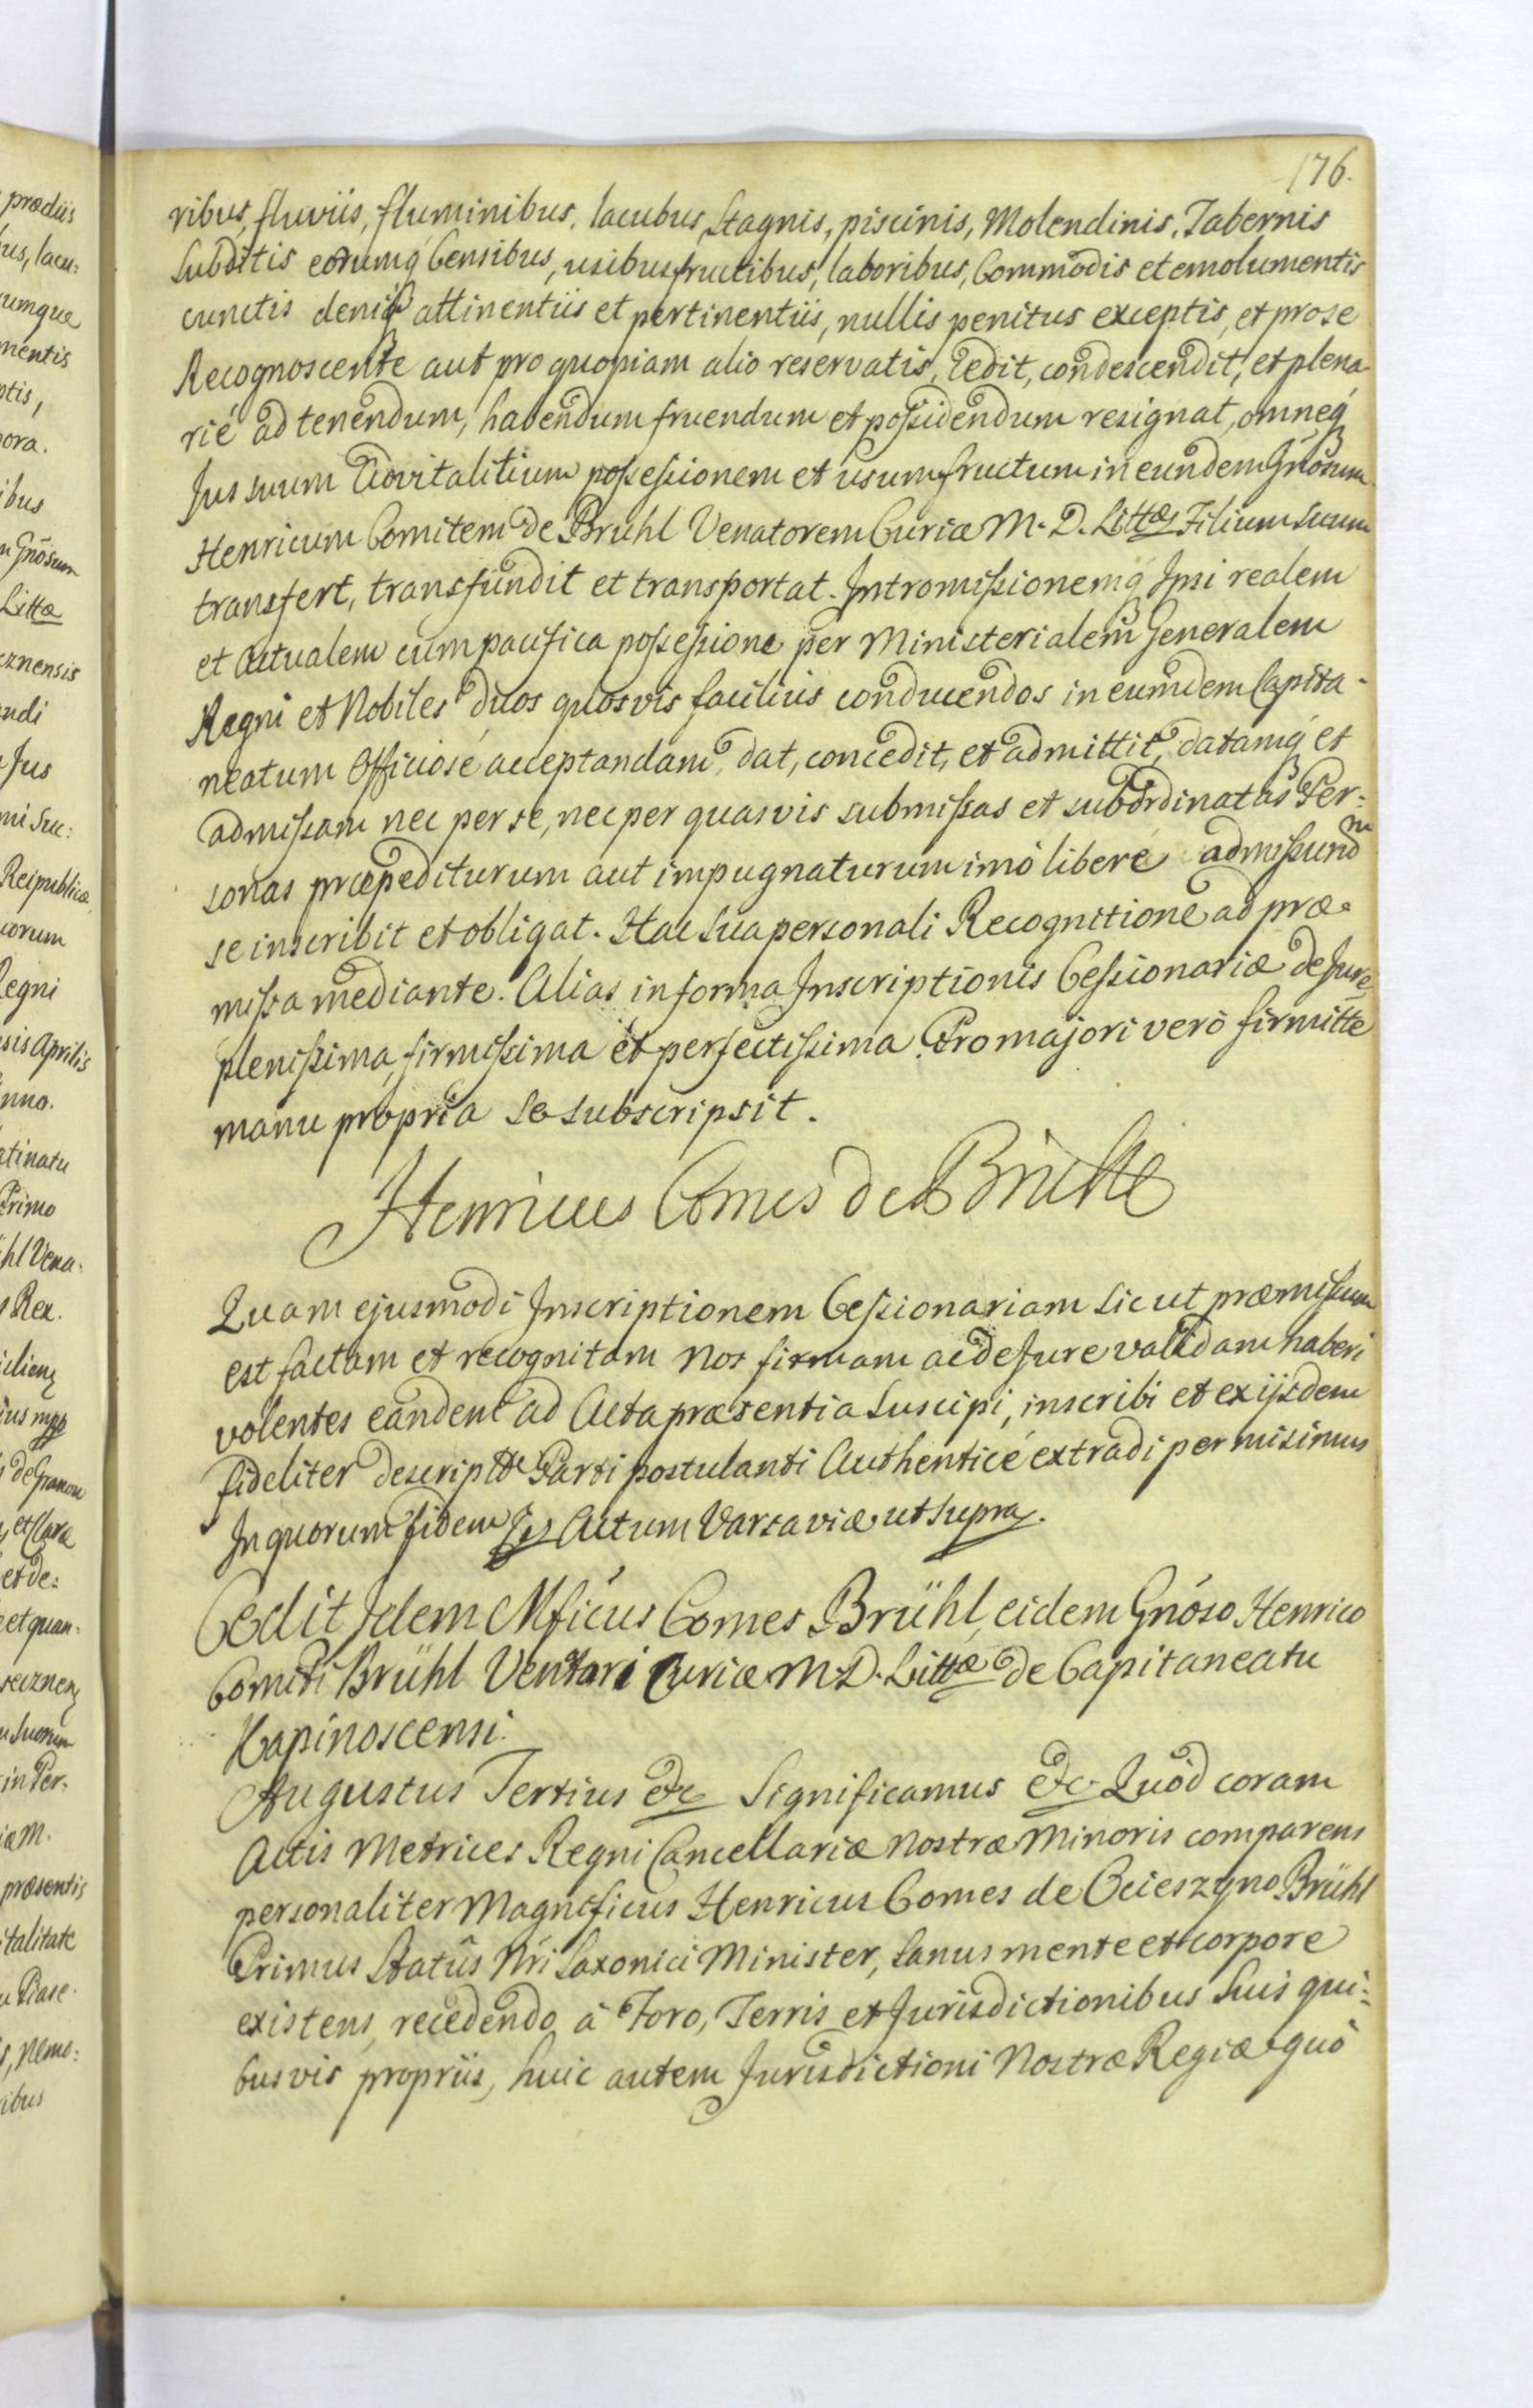 176.
ribus, fluviis, fluminibus, lacubus, Stagnis, piscinis, Molendinis, Tabernis
Subditis eorumq́ Censibus, usibusfructibus, laboribus, Commodis et emolumentis
cunctis deniq́ attinentiis et pertinentiis, nullis penitus exceptis, et pro se
Recognoscente aut pro quopiam alio reservatis, Cedit, condescendit, et plena
rié ad tenendum, habendum fruendum et possidendum resignat, omneq́
Jus suum Advitalitium possessionem et usumfructum in eundem Gnosum
Henricum Comitem de Brühl Venatorem Curiæ M. D. Littæ Filium Suum
transfert, transfundit et transportat. Intromissionemq́ Ipsi realem
et actualem cum pacifica possessione per Ministerialem Generalem
Regni et Nobiles duos quosvis facilius conducendos in eumdem Capita-
neatum Officiosé acceptandam, dat, concedit, et admittit, datamq́ et
admissam nec per se, nec per quasvis submissas et subordinatas Per:
sonas præpediturum aut impugnaturum imò liberé admissurum
se inscribit et obligat. Hac Sua personali Recognitione ad præ-
missa mediante. Alias in forma Inscriptionis Cessionariæ de Jure
plenissima, firmissima et perfectissima. Pro majori verò firmitte
manu propria se subscripsit.
Henricus Comes de Brühl
Quam ejusmodi Inscriptionem Cessionariam sicut præmissum
est factam et recognitam Nos firmam ac de Jure validam haberi
volentes eandem ad Acta præsentia Suscipi, inscribi et ex ijsdem
fideliter descriptte Parti postulanti Authenticé extradi permisimus
In quorum fidem Actum Varsaviæ ut supra.
Cedit Idem Mficus Comes Brühl, eidem Gnóso Henrico
Comiti Brühl Venatori Curiæ M. D. Littæ de Capitaneatu
Kapinoscensi.
Augustus Tertius &c Significamus &c Quòd coram
Actis Metrices Regni Cancellariæ Nostræ Minoris comparens
personaliter Magnificus Henricus Comes de Ocieszyno Brühl
Primus Statûs Nri Saxonici Minister, Sanus mente et corpore
existens, recedendo à Foro, Terris et Jurisdictionibus Suis qui:
busvis propriis, huic autem Jurisdictioni Nostræ Regiæ quò